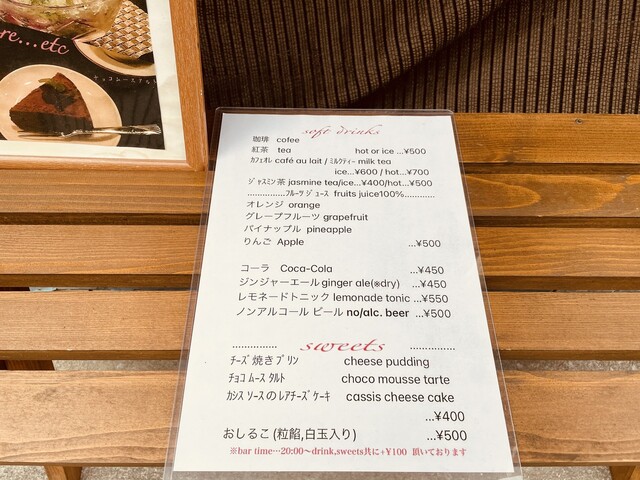 re...etc
チョコムースタルト
soft drinks
珈琲 cofee
紅茶 tea hot or ice ...¥500
カフェオレ café au lait / ミルクティー milk tea
ice...¥600 / hot...¥700
ジャスミン茶 jasmine tea/ice...¥400/hot...¥500
...............フルーツジュース fruits juice100%............
オレンジ orange
グレープフルーツ grapefruit
パイナップル pineapple
りんご Apple ...¥500
コーラ Coca-Cola ...¥450
ジンジャーエール ginger ale(※dry) ...¥450
レモネードトニック lemonade tonic ...¥550
ノンアルコール ビール no/alc. beer ...¥500
............... sweets ...............
チーズ焼きプリン cheese pudding
チョコムースタルト choco mousse tarte
カシスソースのレアチーズケーキ cassis cheese cake
...¥400
おしるこ(粒餡,白玉入り) ...¥500
※bar time…20:00〜drink,sweets共に+¥100 頂いております